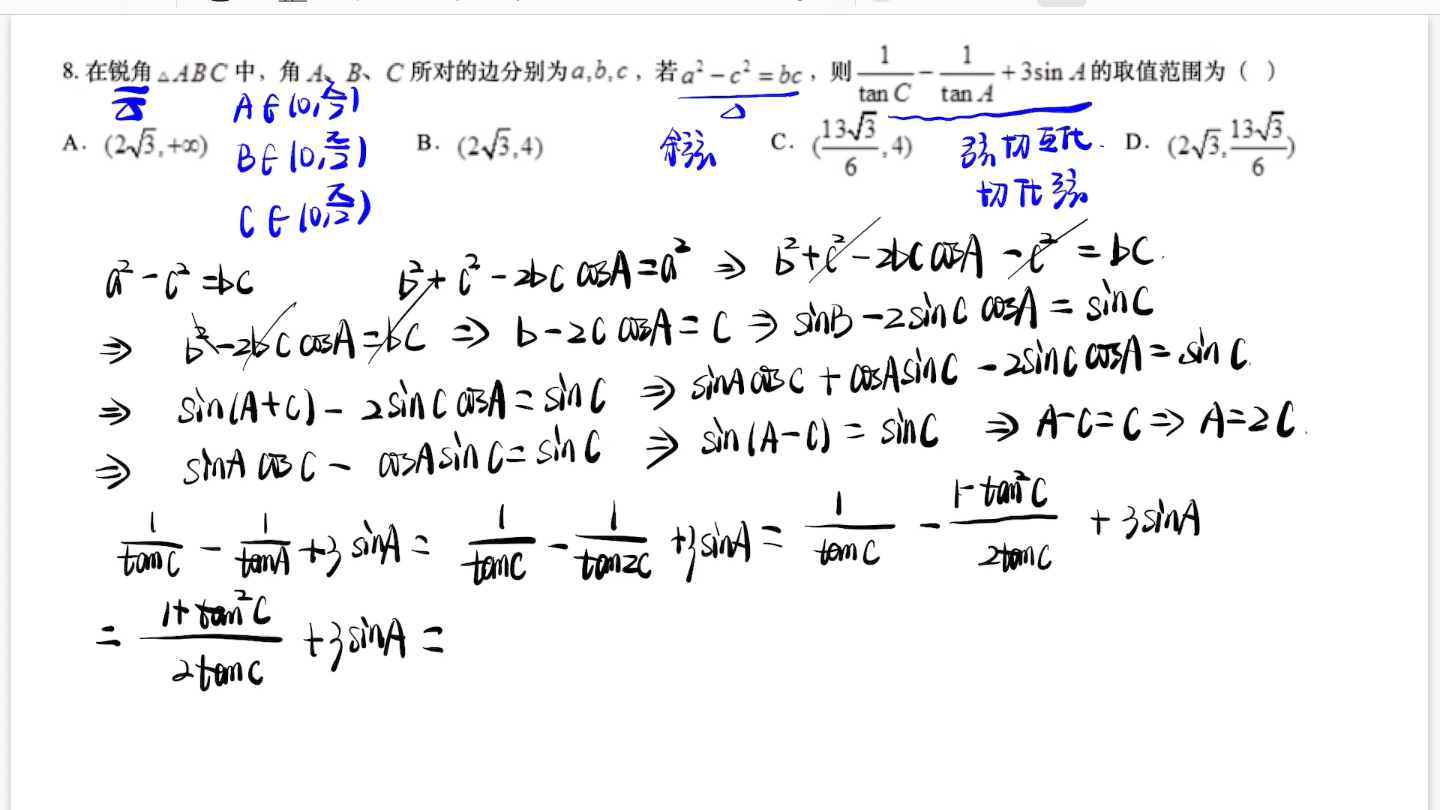 8. 在锐角△ABC中，角A、B、C所对的边分别为a,b,c，若a²－c²＝bc，则 1/tan C － 1/tan A ＋3sin A的取值范围为（ ）
A. (2√3,+∞) B. (2√3,4) C. (13√3/6,4) D. (2√3,13√3/6)
A∈(0,π/2)
B∈(0,π/2)
C∈(0,π/2)
余弦
弦切互化.
切化弦
a²－c²=bc b²+c²－2bc cosA=a² ⇒ b²+c²－2bc cosA－c²=bc.
⇒ b²－2bc cosA=bc ⇒ b－2c cosA=c ⇒ sinB－2sinC cosA=sinC
⇒ sin(A+C)－2sinC cosA=sinC ⇒ sinA cosC+cosA sinC－2sinC cosA=sinC.
⇒ sinA cosC－cosA sinC=sinC ⇒ sin(A－C)=sinC ⇒ A－C=C ⇒ A=2C.
1/tanC － 1/tanA +3sinA= 1/tanC － 1/tan2C +3sinA= 1/tanC － (1－tan²C)/2tanC +3sinA
= (1+tan²C)/2tanC +3sinA=